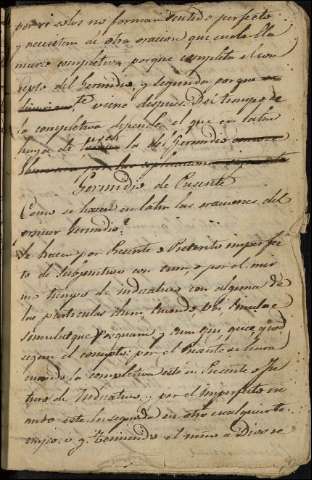 por si solos no forman sentido perfecto
y necesitan de otra oracion que es la lla-
mada completiva porque completa el con-
cepto del Gerundio, y segunda porque
viene despues. Del tiempo de
la completiva depende el que en latin
haya de la del Gerundio
Gerundio de Presente
Como se hacen en latin las oraciones del
primer Gerundio?
Se hacen por Presente o Preterito imperfec-
to de Subjuntivo con cum o por el mis-
mo tiempo de indicativo con alguna de
las particulas dum, quando, ubi,
simulatque, y
segun el concepto: por el Presente se lleva
cuando la completiva está en Presente o Fu-
turo de Indicativo; y por el imperfecto cu-
ando esta la segunda en otro cualquier ti-
empo. v. g. Temiendo el niño a Dios se